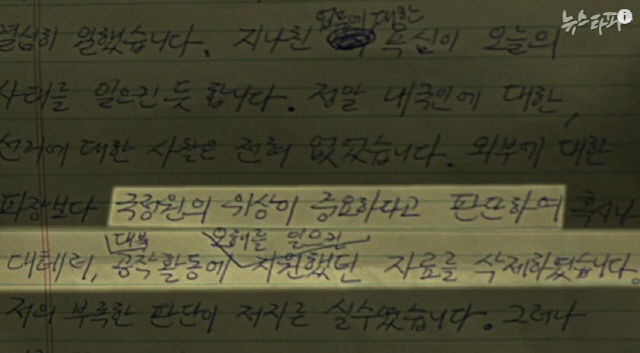 뉴스타파
업무에 대한
열심히 일했습니다. 지나친 욕심이 오늘의
사태를 일으킨 듯 합니다. 정말 내국인에 대한,
선거에 대한 사찰은 전혀 없었습니다. 외부에 대한
파장보다 국정원의 위상이 중요하다고 판단하여 혹시나
대북 오해를 일으킬
대테러, 공작활동에 지원했던 자료를 삭제하였습니다.
저의 부족한 판단이 저지른 실수였습니다. 그러나